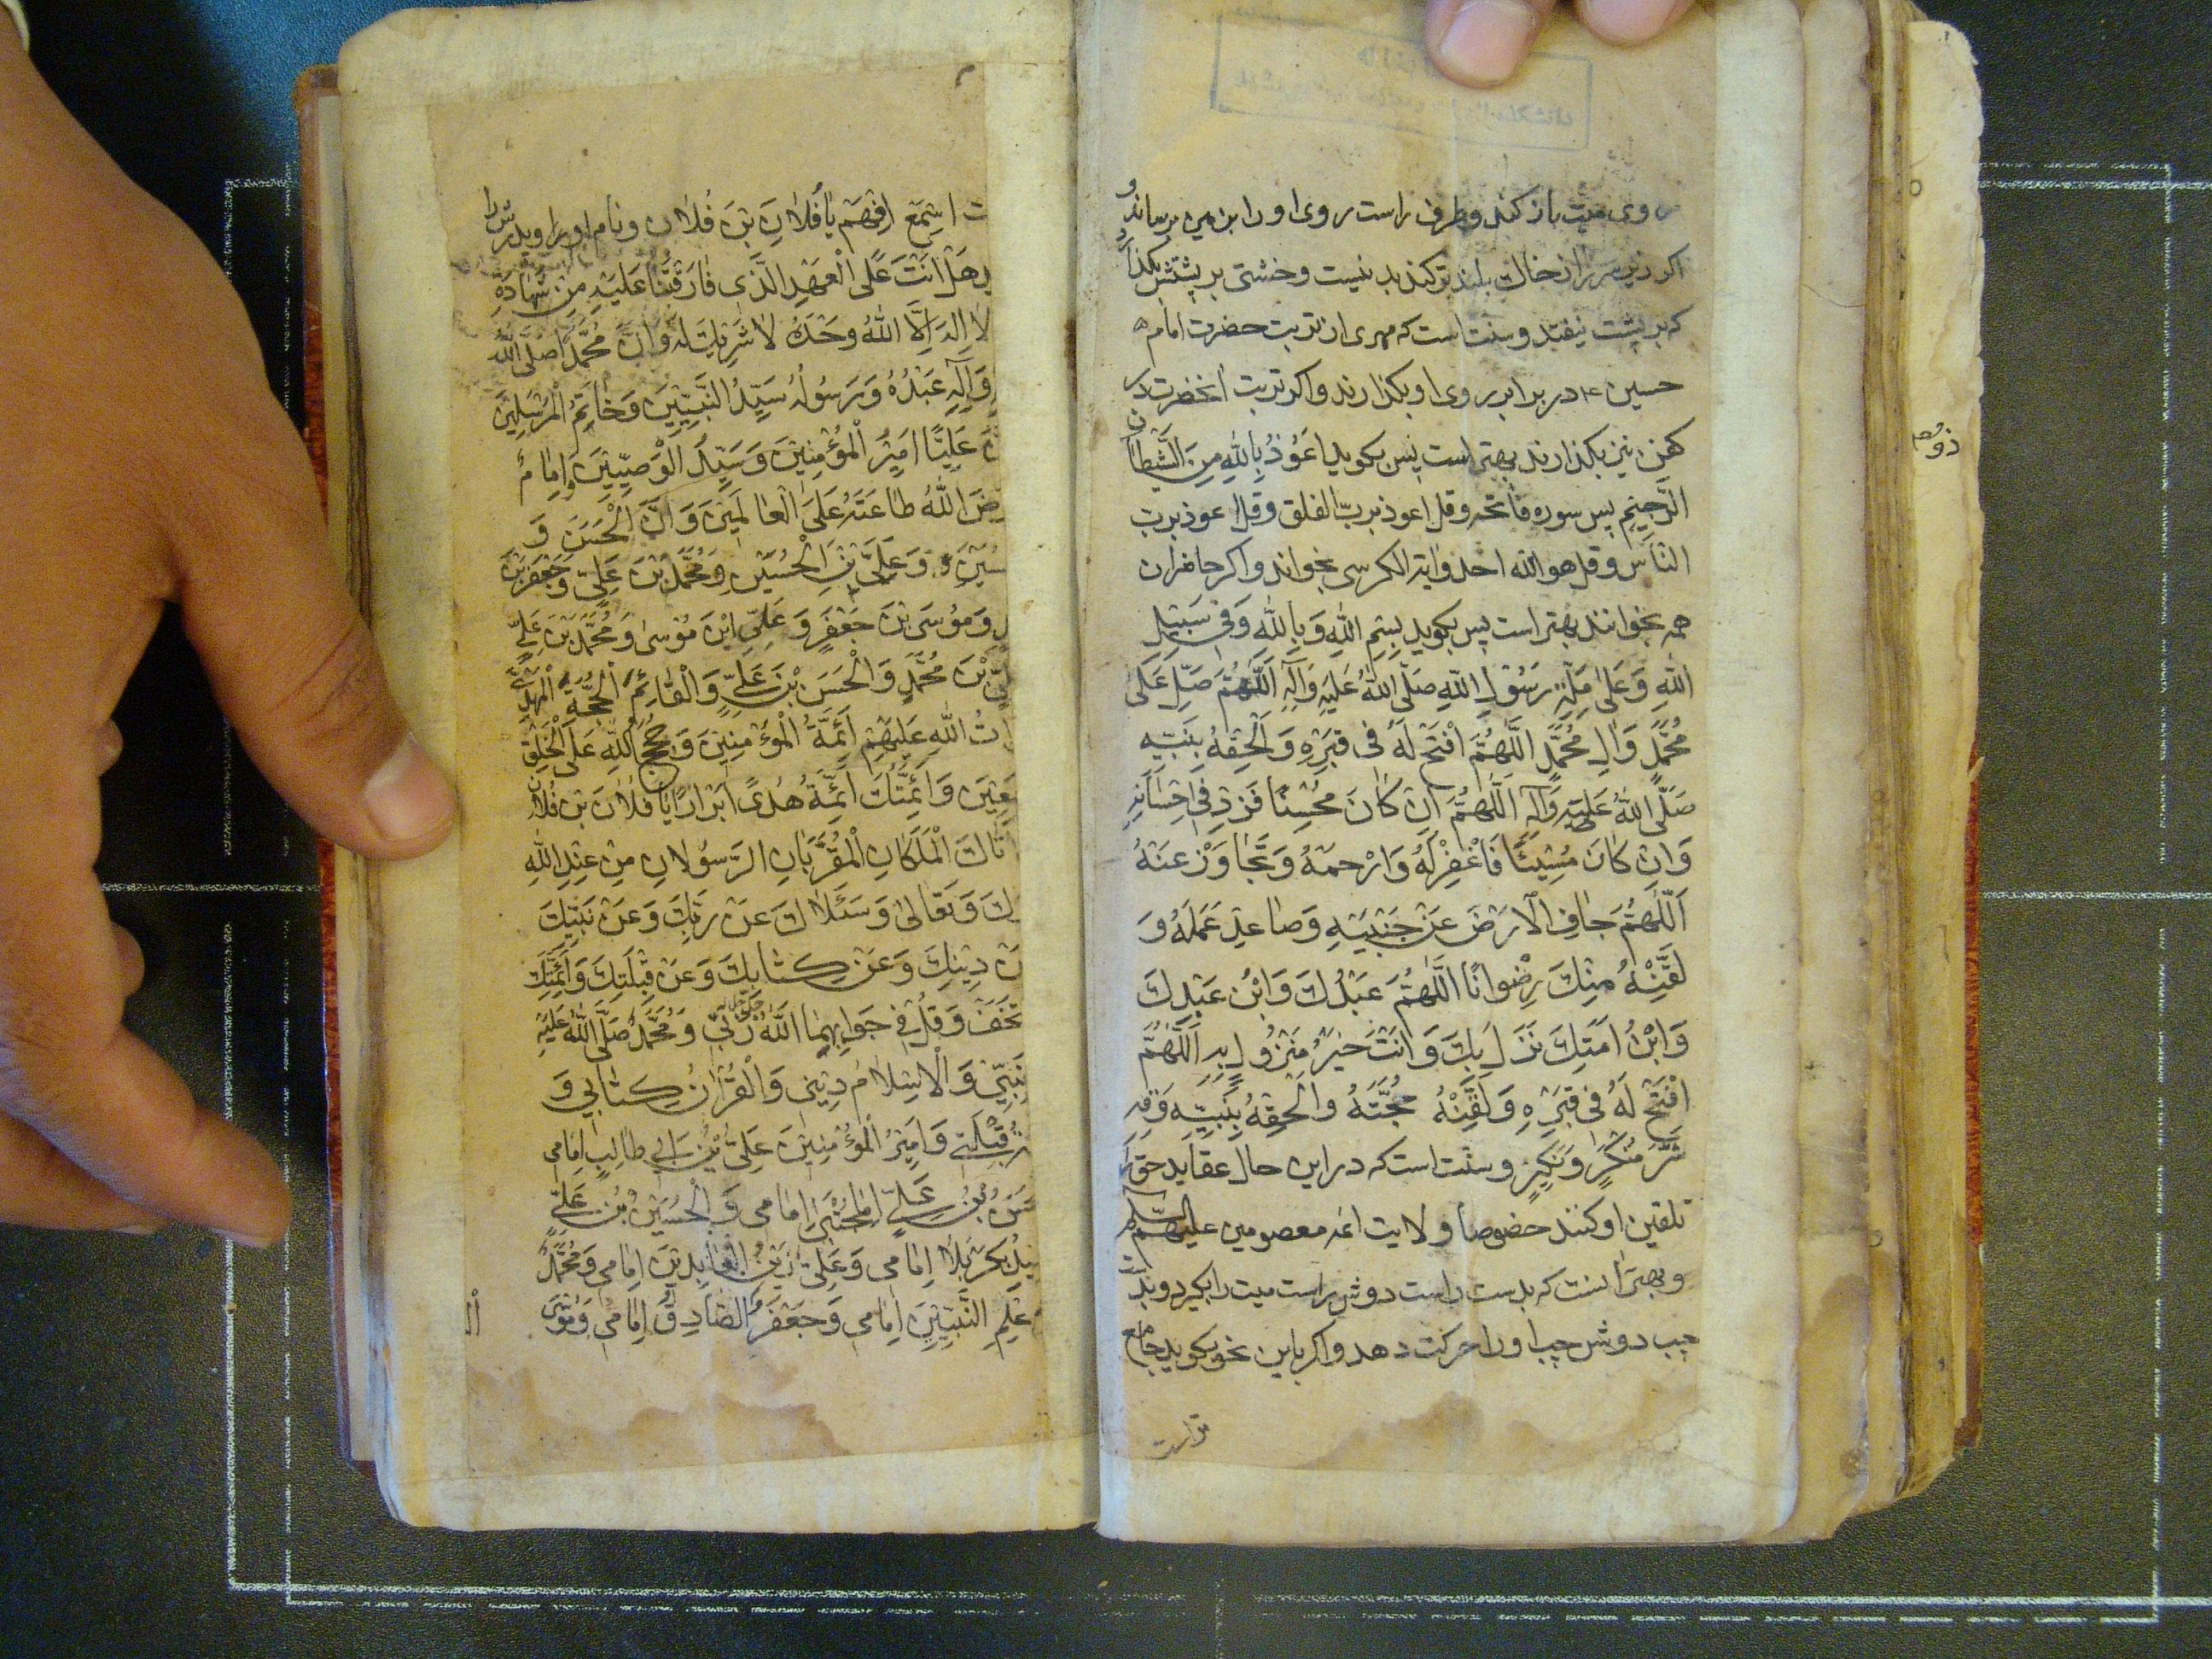 روی میت باز کند و طرف راست روی او را بزمین برساند و
اکر زیر سر را از خاک بلندتر کند بد نیست و خشتی بر پشتش بکذارد
که بر پشت نیفتد و سنت است که مهری از تربت حضرت امام
حسین ع در برابر روی او بکذارند و اکر تربت انحضرت در
کفن نیز بکذارند بهتر است پس بکوید اَعُوْذُ بِاللهِ مِنَ الشَّیْطانِ
الرَّجِیْمِ پس سوره فاتحه و قل اعوذ برب الفلق و قل اعوذ برب
الناس و قل هو الله احد و ایة الکرسی بخواند و اکر حاضران
همه بخوانند بهتر است پس بکوید بِسْمِ اللهِ وَبِاللهِ وَفی سَبیْلِ
اللهِ وَعَلیٰ مِلَّةِ رَسُوْلِ اللهِ صَلَّی اللهُ عَلَیْهِ وَآلِهِ اَللّهُمَّ صَلِّ عَلَی
مُحَمَّدٍ وَالِ مُحَمَّدٍ اللَّهُمَّ افْتَحْ لَهُ فی قَبْرِهِ وَاَلْحِقْهُ بِنَبِیِّهِ
صَلَّی اللهُ عَلَیْهِ وَآلِهِ اَللّهُمَّ اِنْ کانَ مُحْسِنًا فَزِدْ فی اِحْسانِهِ
وَاِنْ کانَ مُسِیْئًا فَاغْفِرْ لَهُ وَارْحَمْهُ وَتَجاوَزْ عَنْهُ
اَللّهُمَّ جافِ الْاَرْضَ عَنْ جَنْبَیْهِ وَصاعِدْ عَمَلَهُ وَ
لَقِّنْهُ مِنْکَ رِضْوانًا اَللّهُمَّ عَبْدُکَ وَابْنُ عَبْدِکَ
وَابْنُ اَمَتِکَ نَزَلَ بِکَ وَاَنْتَ خَیْرُ مَنْزُوْلٍ بِهِ اَللّهُمَّ
افْتَحْ لَهُ فی قَبْرِهِ وَلَقِّنْهُ حُجَّتَهُ وَاَلْحِقْهُ بِنَبِیِّهِ وَقِهِ
شَرَّ مُنْکَرٍ وَنَکِیْرٍ و سنت است که در این حال عقاید حق را
تلقین او کنند خصوصا ولایت ائمه معصومین علیهم السلام
و بهتر انست که بدست راست دوش راست میت را بکیرد و بدست
چپ دوش چپ او را حرکت دهد و اکر باین نحو بکوید جامع
تر است
اسْمَعْ افْهَمْ یا فُلانَ بْنَ فُلان و نام او را و پدرش را
هَلْ اَنْتَ عَلَی الْعَهْدِ الَّذی فارَقْتَنا عَلَیْهِ مِنْ شَهادَةِ
لا اِلهَ اِلَّا اللهُ وَحْدَهُ لا شَرِیْکَ لَهُ وَاَنَّ مُحَمَّدًا صَلَّی اللهُ
وَآلِهِ عَبْدُهُ وَرَسُوْلُهُ سَیِّدُ النَّبِیّیْنَ وَخاتَمُ الْمُرْسَلِیْنَ
عَلِیًّا اَمِیْرُ الْمُؤْمِنِیْنَ وَسَیِّدُ الْوَصِیّیْنَ وَاِمامٌ
ضَ اللهُ طاعَتَهُ عَلَی الْعالَمِیْنَ وَاَنَّ الْحَسَنَ وَ
سَیْنَ وَعَلِیَّ بْنَ الْحُسَیْنِ وَمُحَمَّدَ بْنَ عَلِیٍّ وَجَعْفَرَ بْنَ
وَمُوْسَی بْنَ جَعْفَرٍ وَعَلِیَّ ابْنَ مُوْسیٰ وَمُحَمَّدَ بْنَ عَلِیٍّ
بْنَ مُحَمَّدٍ وَالْحَسَنَ بْنَ عَلِیٍّ وَالْقائِمَ الْحُجَّةَ الْمَهْدِیَّ
اتُ اللهِ عَلَیْهِمْ اَئِمَّةُ الْمُؤْمِنِیْنَ وَحُجَجُ اللهِ عَلَی الْخَلْقِ
مَعِیْنَ وَاَئِمَّتُکَ اَئِمَّةُ هُدًی اَبْرارًا یا فُلانَ بْنَ فُلانٍ
اَتاکَ الْمَلَکانِ الْمُقَرَّبانِ الرَّسُوْلانِ مِنْ عِنْدِ اللهِ
کَ وَتَعالیٰ وَسَئَلاکَ عَنْ رَبِّکَ وَعَنْ نَبِیِّکَ
نْ دِیْنِکَ وَعَنْ کِتابِکَ وَعَنْ قِبْلَتِکَ وَاَئِمَّتِکَ
تَخَفْ وَقُلْ فی جَوابِهِما اَللهُ رَبّی وَمُحَمَّدٌ صَلَّی اللهُ عَلَیْهِ
نَبِیّی وَالْاِسْلامُ دِیْنی وَالْقُرْآنُ کِتابی وَ
قِبْلَتی وَاَمِیْرُ الْمُؤْمِنِیْنَ عَلِیُّ بْنُ اَبی طالِبٍ اِمامی
سَنُ بْنُ عَلِیٍّ الْمُجْتَبیٰ اِمامی وَالْحُسَیْنُ بْنُ عَلِیٍّ
یْدُ بِکَرْبَلا اِمامی وَعَلِیٌّ زَیْنُ الْعابِدِیْنَ اِمامی وَمُحَمَّدٌ
عِلْمِ النَّبِیّیْنَ اِمامی وَجَعْفَرٌ الصّادِقُ اِمامی وَمُوْسَی